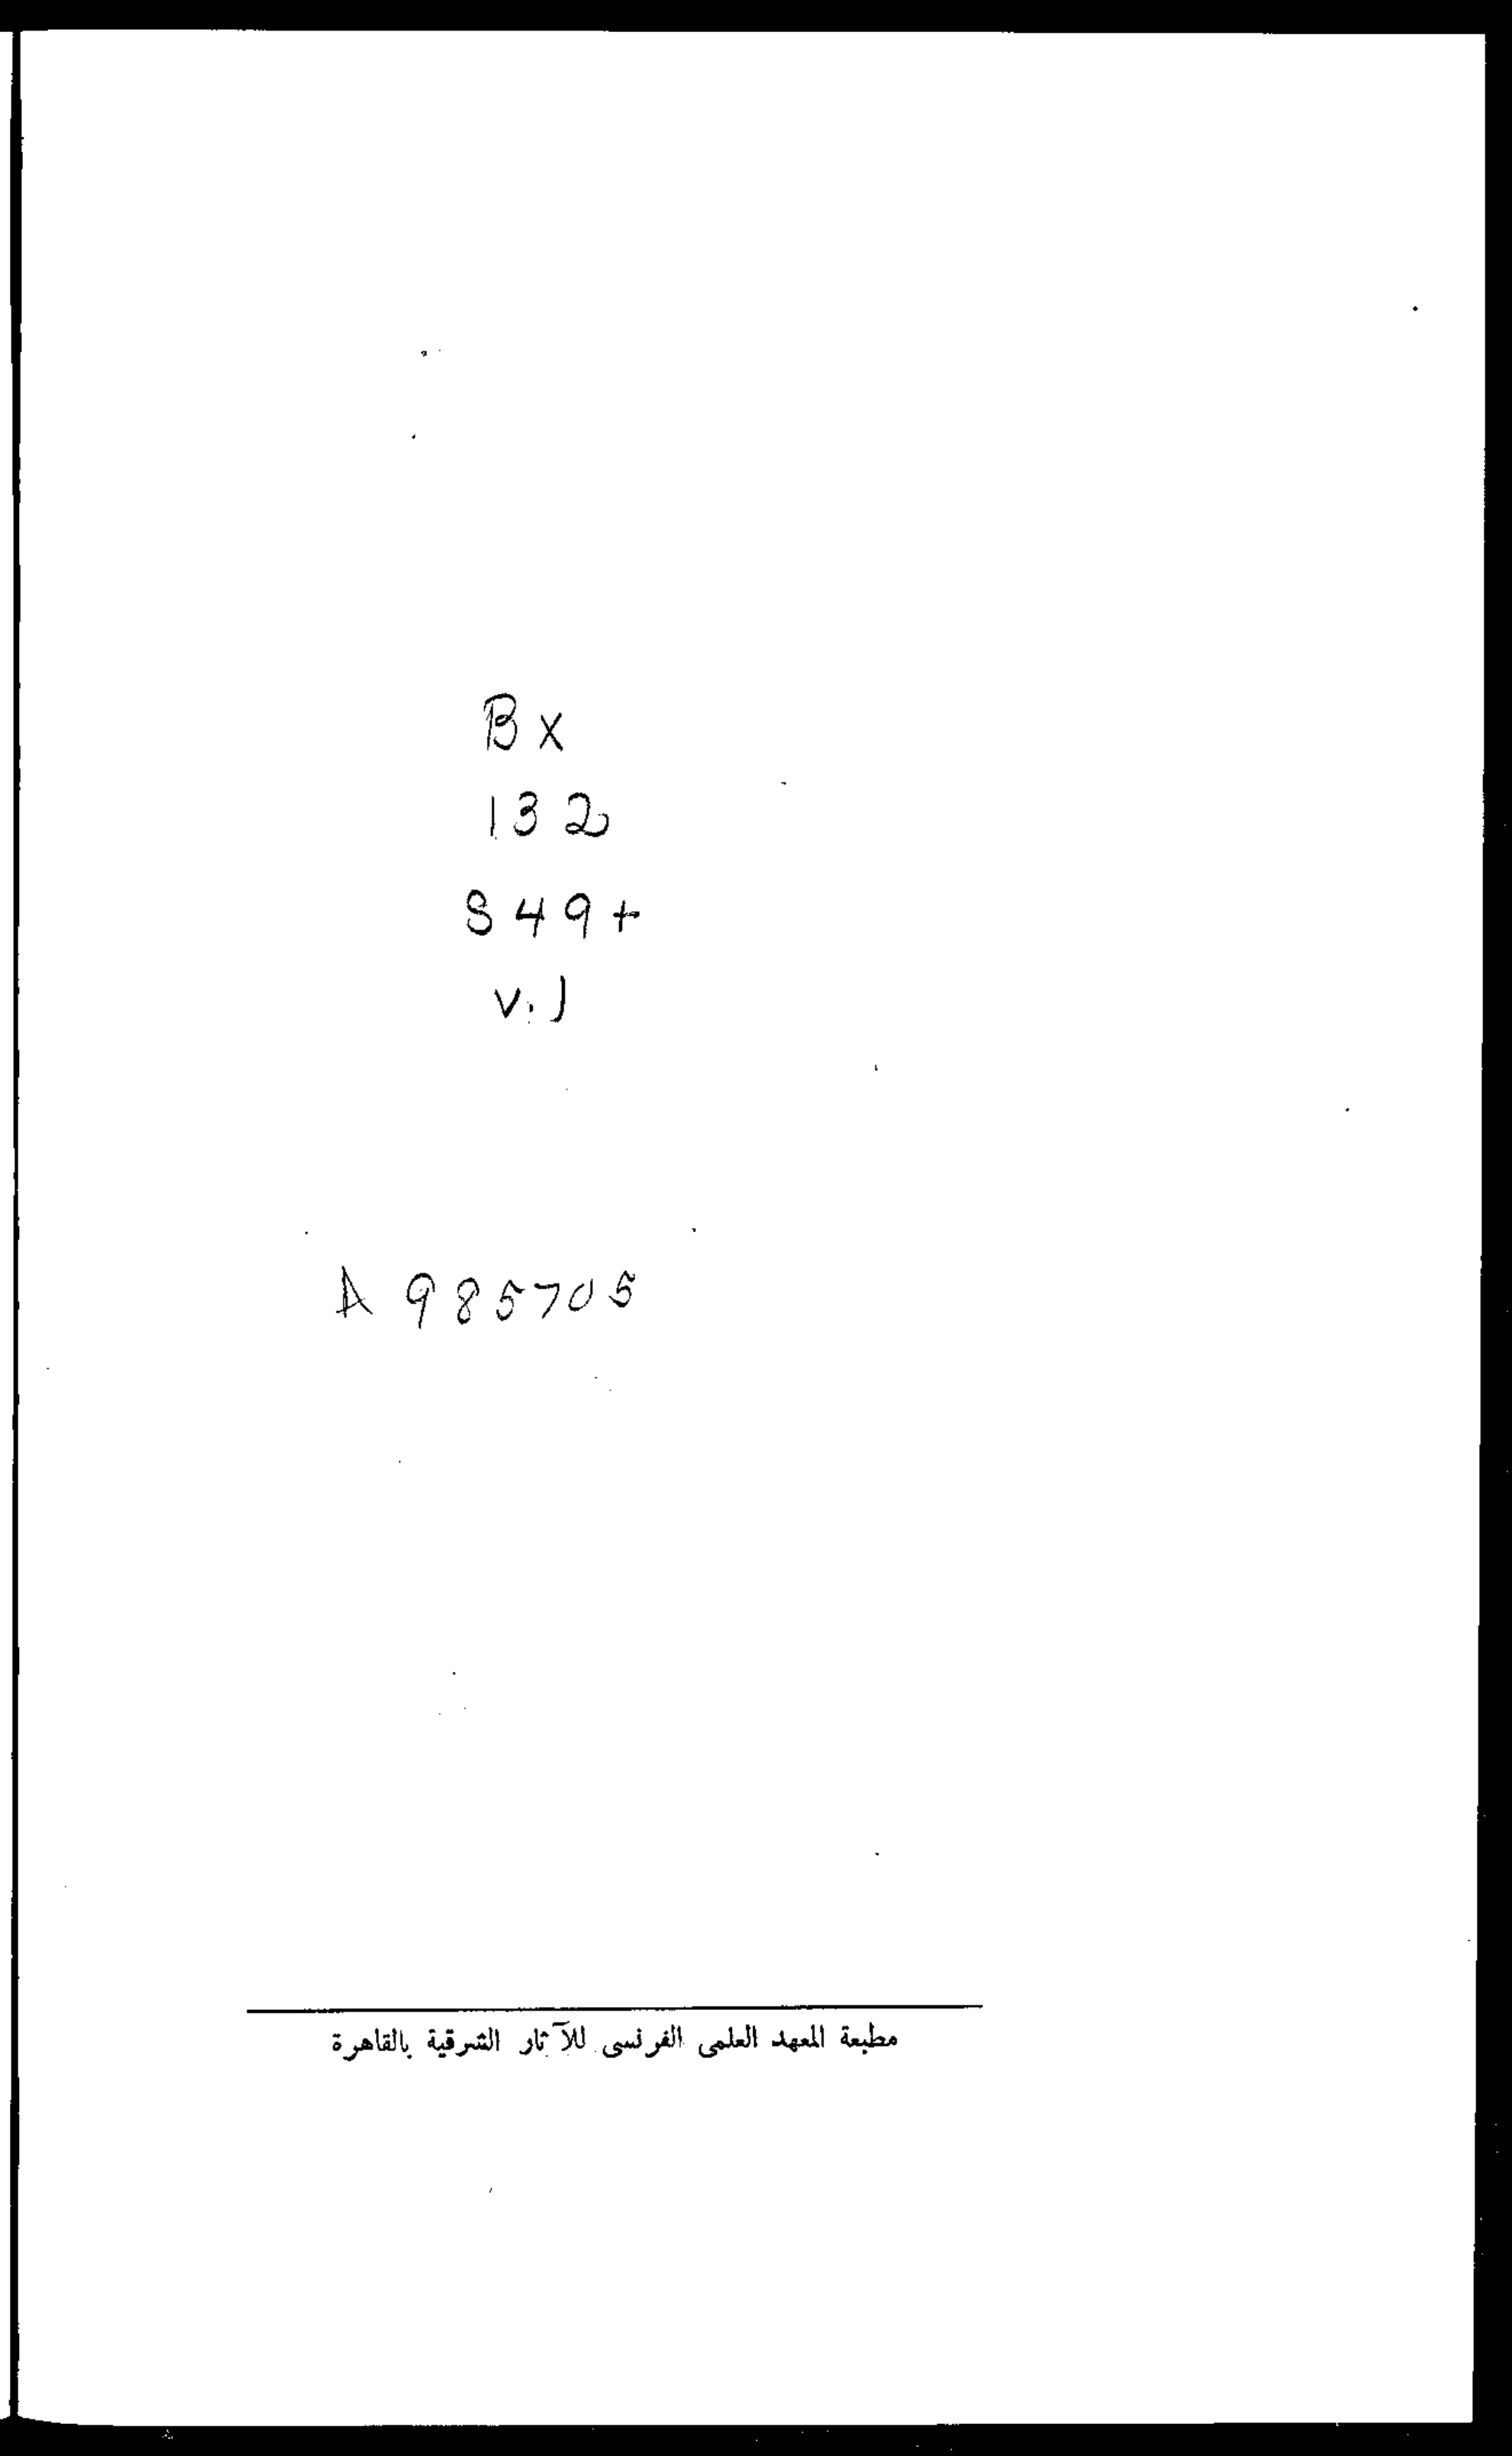 Bx
132
S49+
v.1
A 985705
مطبعة المعهد العلمى الفرنسى للآثار الشرقية بالقاهرة